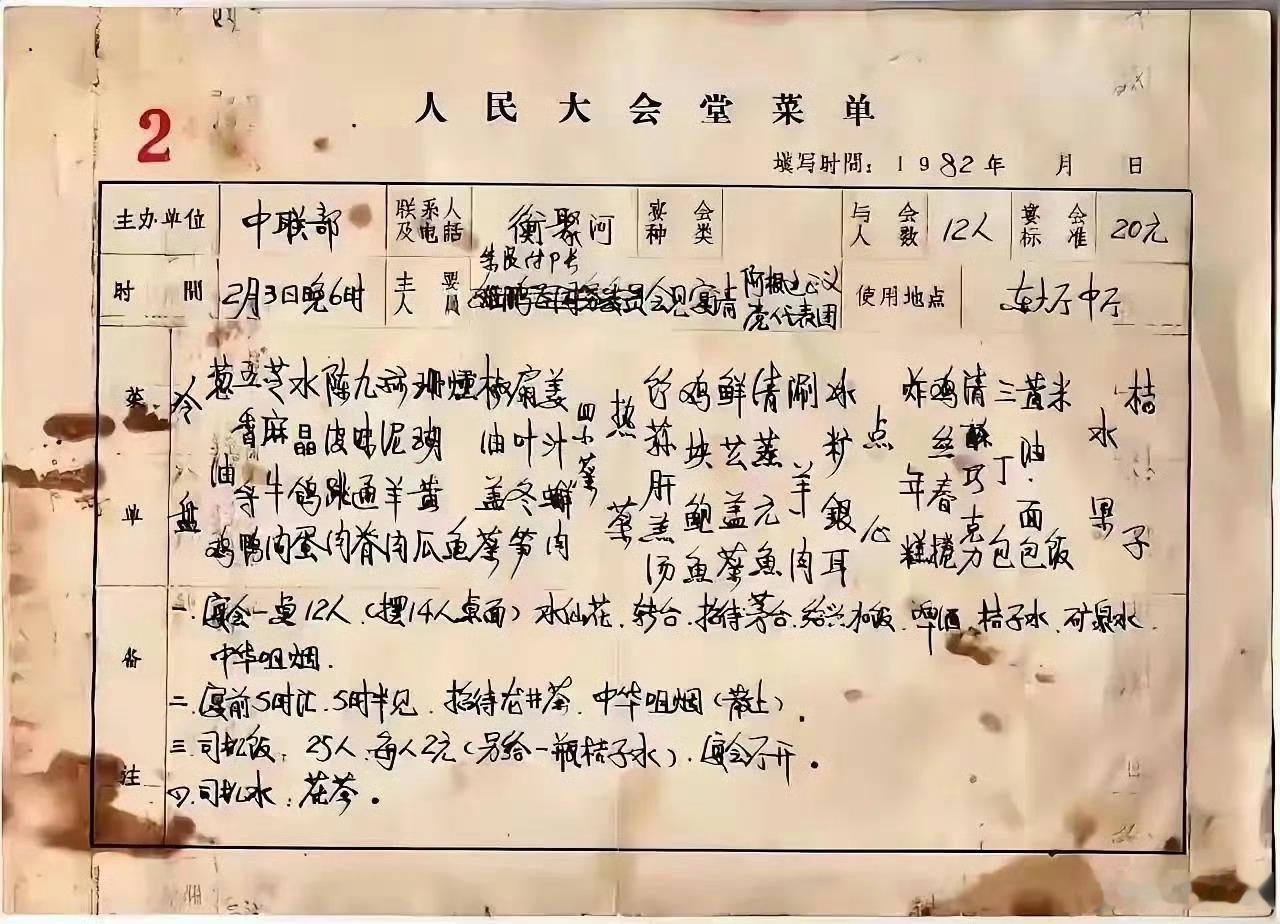 2
人民大会堂菜单
填写时間：1982年 月 日
主办单位 中联部 联系人及电话 衡聚河 宴会种类 与会人数 12人 宴会标准 20元
时間 2月3日晚6时 主要人員 朱良付P长 会见宴请阿根廷正义党代表团 使用地点 东大厅中厅
菜单
冷盘
葱油鸡
五香鸭
芝麻牛肉
水晶鸽蛋
陈皮跳肉
九味通脊
蒜泥羊肉
珊瑚黄瓜
燻鱼
椒油盖菜
扇叶冬笋
姜汁蟹肉
四小菜
热菜
竹荪肝羔汤
鸡块鲍鱼
鲜芸盖菜
清蒸元鱼
涮羊肉
冰籽銀耳
点心
炸年糕
鸡丝春捲
清酥巧克力
三丁包
黄油面包
米饭
水果
桔子
备注
一.宴会一桌12人（摆14人桌面）水仙花.转台.招待茅台.绍兴.啤酒.桔子水.矿泉水.
中华咀烟.
二.宴前5时汇.5时半见.招待龙井茶.中华咀烟（散上）.
三.司机饭：25人.每人2元（另给一瓶桔子水）.宴会厅开.
四.司机水：花茶.